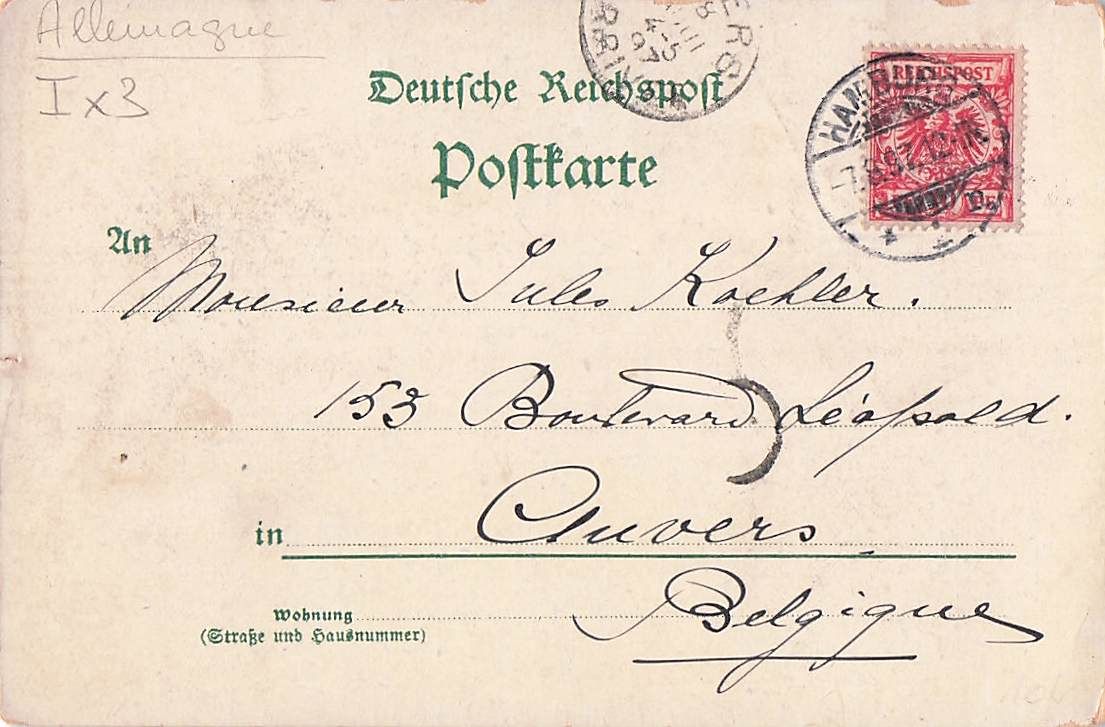 Allemagne
I x 3
Deutsche Reichspost
Postkarte
REICHSPOST
HAMBURG
An
Monsieur Jules Koehler.
153 Boulevard Léopold.
in Anvers
Belgique
Wohnung
(Straße und Hausnummer)